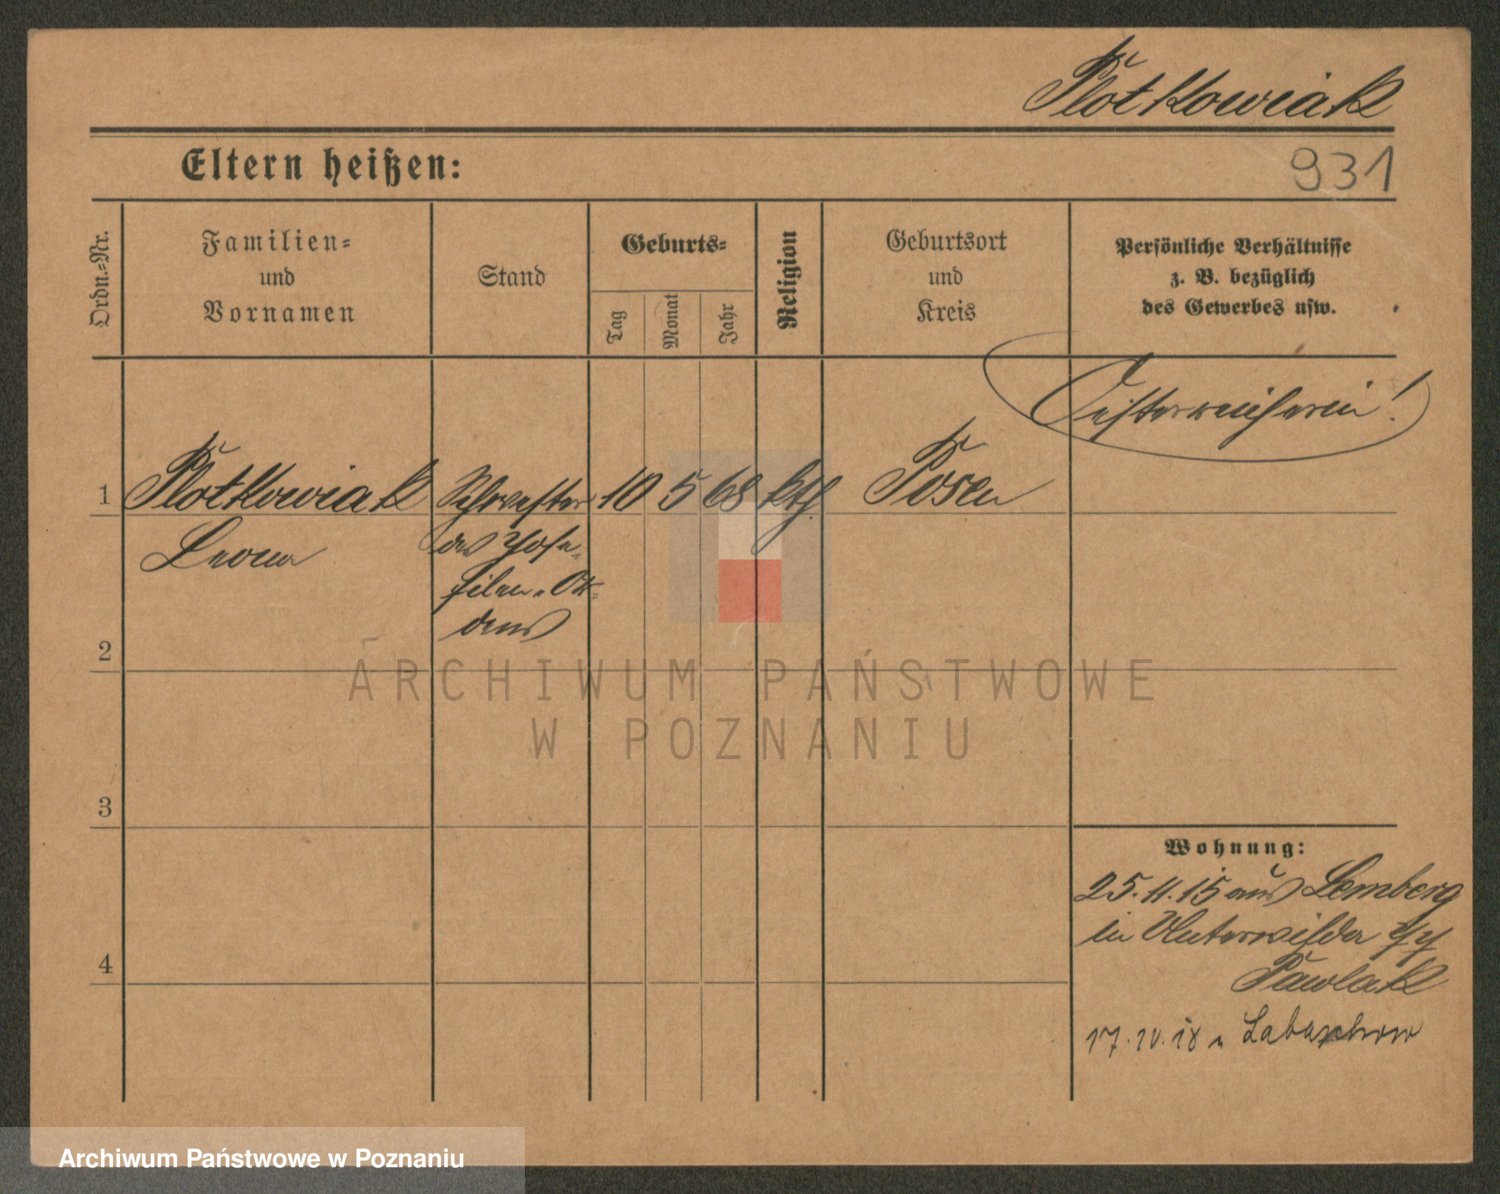 Plotkowiak
Eltern heißen:
931
Ordn.-Nr.
Familien-
und
Vornamen
Stand
Geburts-
Tag
Monat
Jahr
Religion
Geburtsort
und
Kreis
Persönliche Verhältnisse
z. B. bezüglich
des Gewerbes usw.
Oesterreicherin!
1 Plotkowiak Schwester 10 5 68 kth Posen
des Jose-
filen-Or-
dens
2
ARCHIWUM PAŃSTWOWE
W POZNANIU
3
Wohnung:
25.11.15 aus Lemberg
in Unterwilda
4
Pawlak
17.IV.18 n
Archiwum Państwowe w Poznaniu